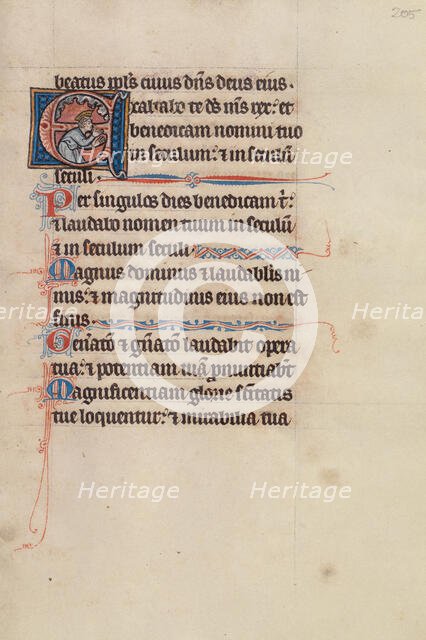 205
beatus ppls cuius dns deus eius.
Exaltabo te ds ms rex: et
benedicam nomini tuo
in seculum: & in seculum
seculi.
Per singulos dies benedicam t:
& laudabo nomen tuum in seculum
& in seculum seculi
Magnus dominus & laudabilis ni
mis: & magnitudinis eius non est
finis
Generatio & generatio laudabit opera
tua: & potentiam tuam pnuntiabt
Magnificentiam glorie sctitatis
tue loquentur: & mirabilia tua
Heritage Heritage
Heritage Heritage Heritage
Heritage Heritage